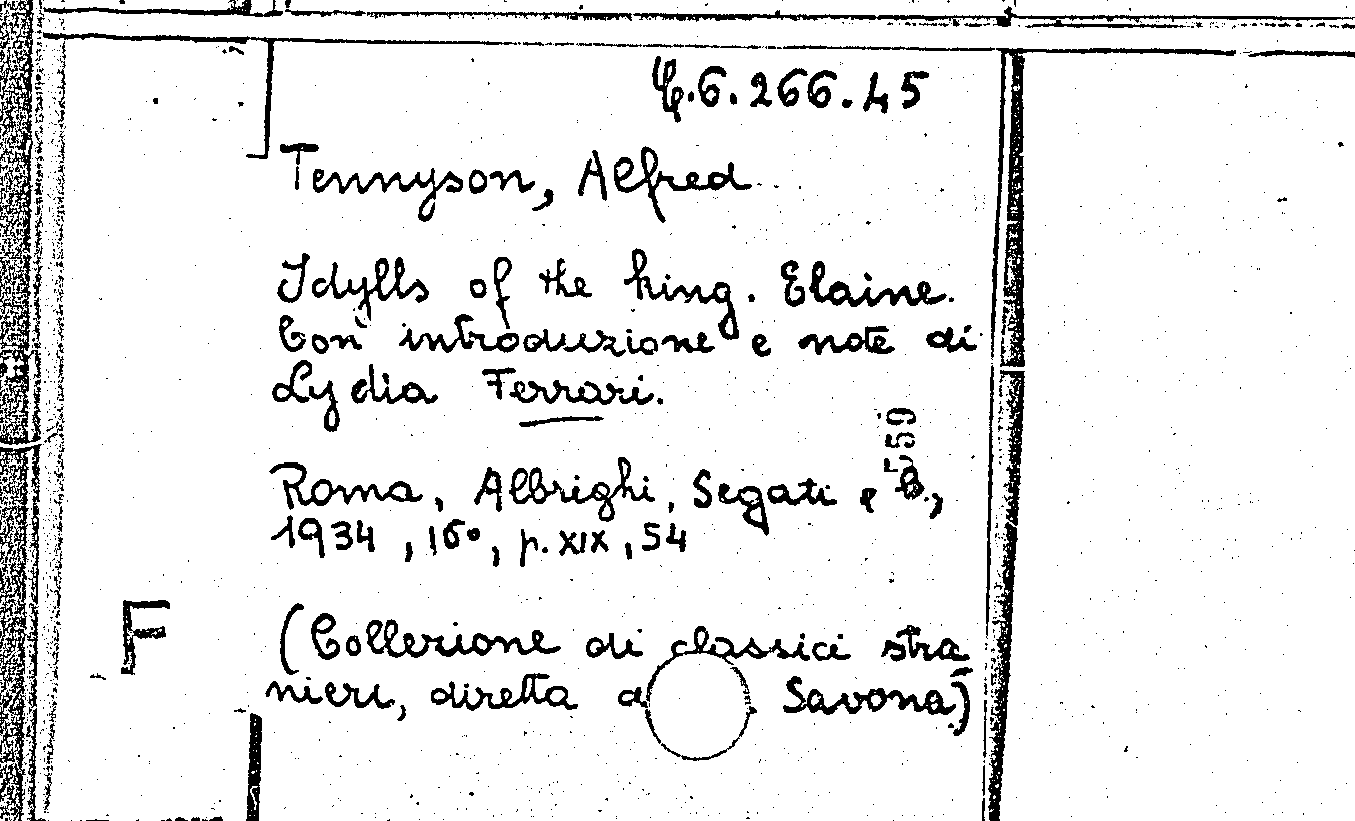 C.6.266.45
Tennyson, Alfred
Idylls of the king. Elaine.
Con introduzione e note di
Lydia Ferrari.
559
Roma, Albrighi, Segati e C.,
1934, 16°, p. XIX, 54
F
(Collezione di classici stra
nieri, diretta d . Savona)